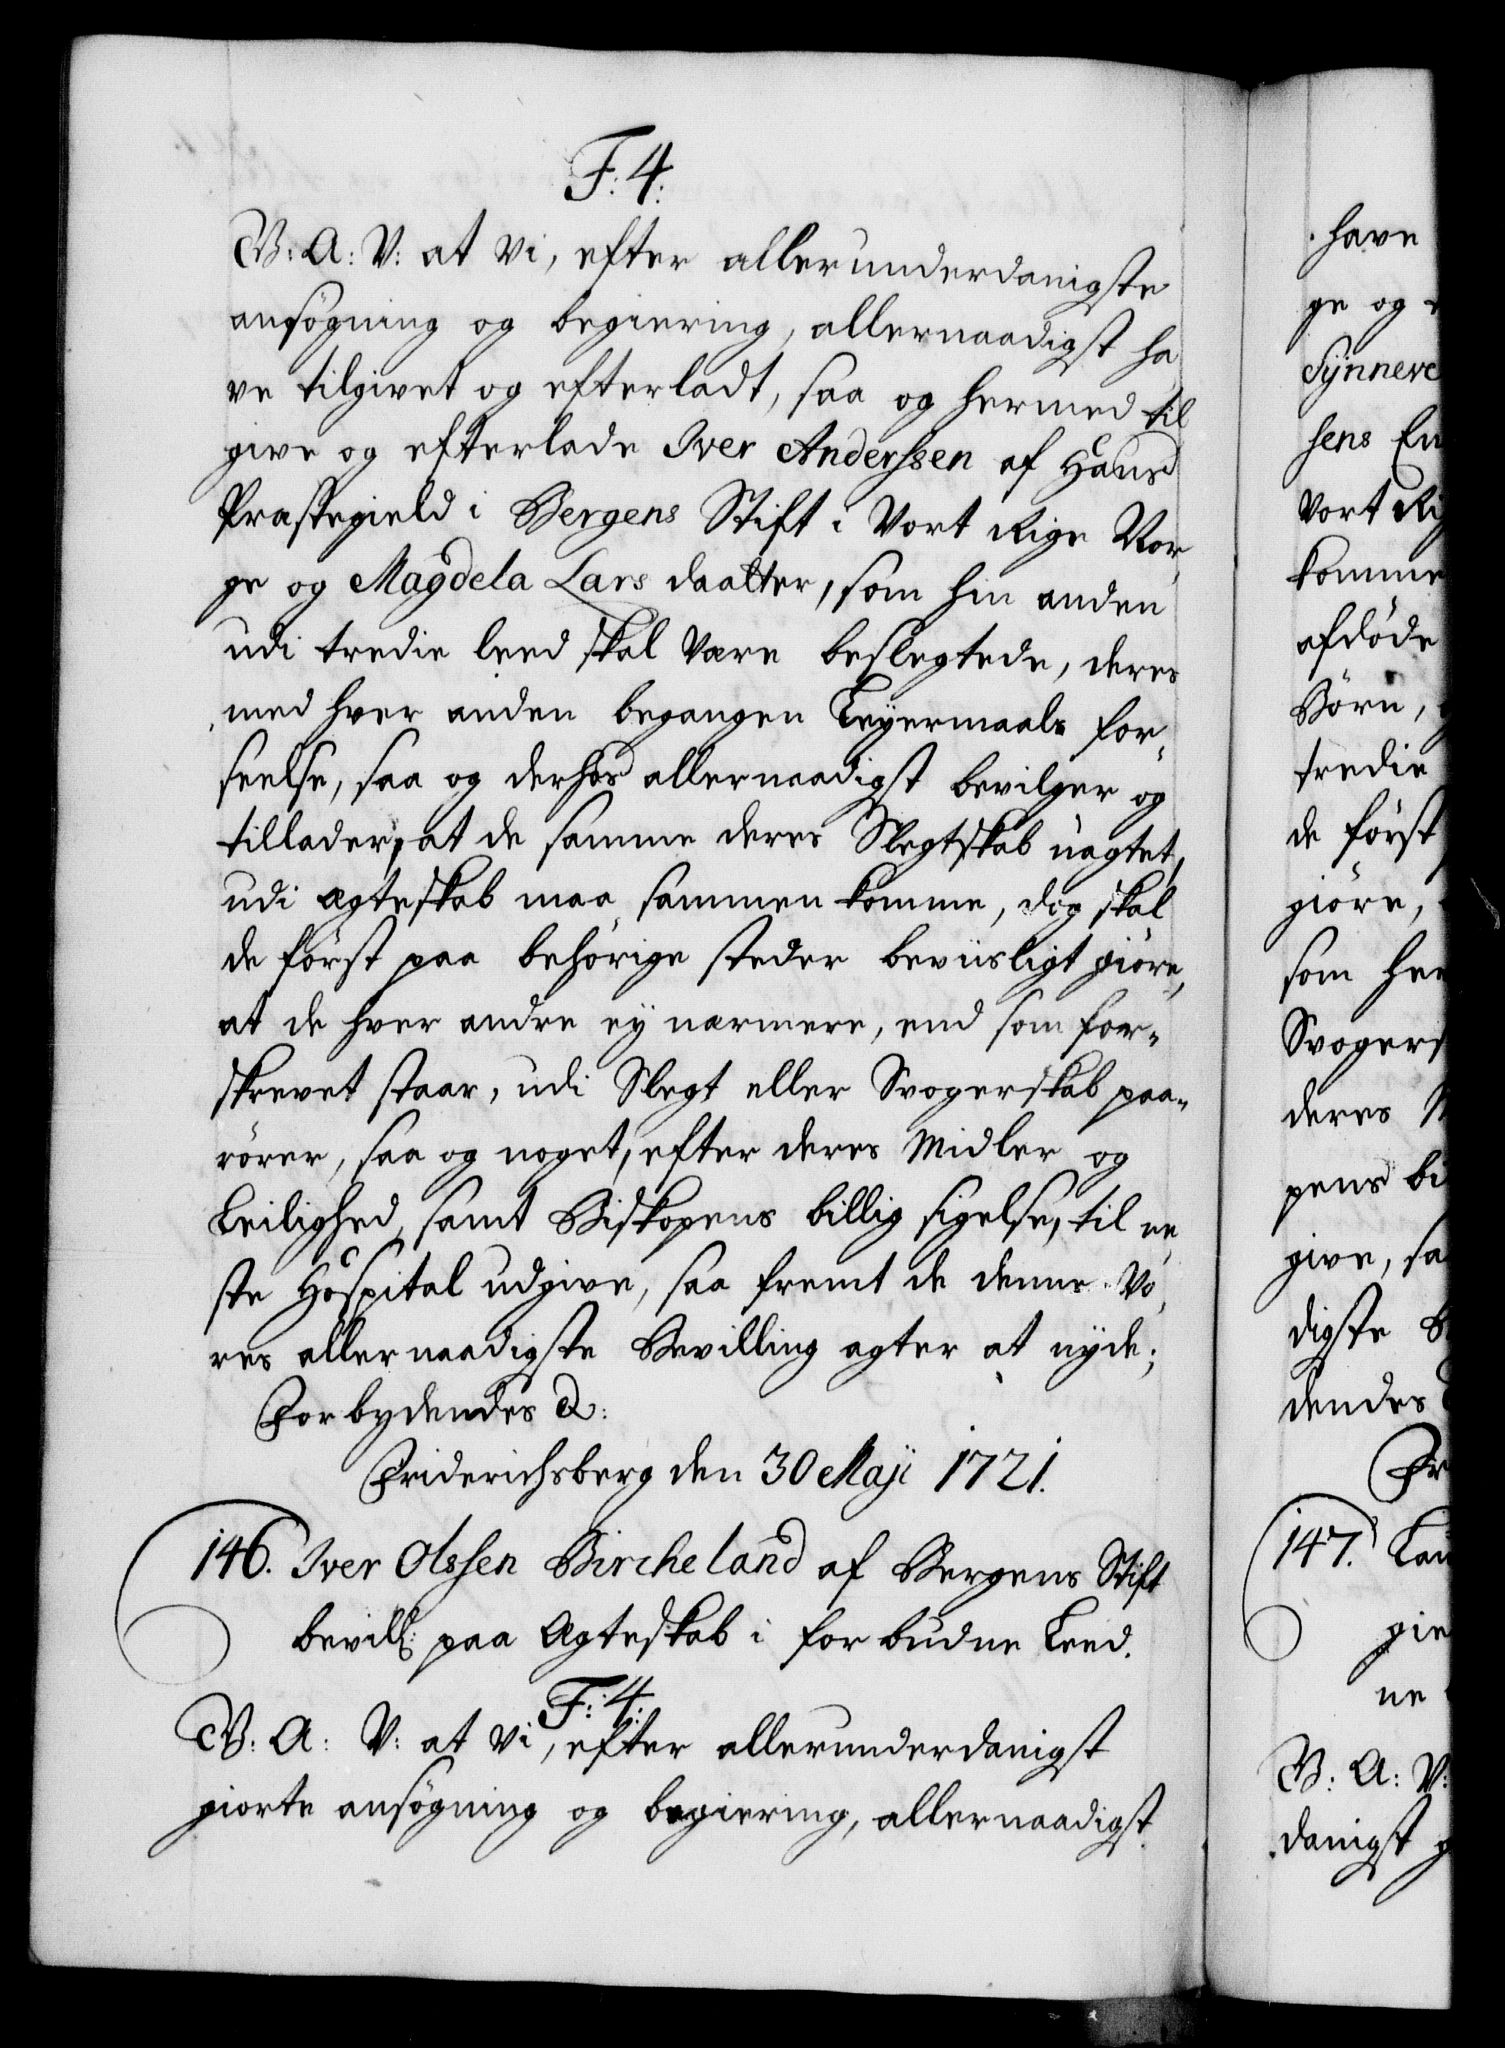 F: 4:
G: A: V: at vi, efter allerunderdanigste
ansøgning og begiering, allernaadigst ha
ve tilgivet og efterladt, saa og hermed til
give og efterlade Iver Anderssen af Haus
Præstegield i Bergens Stift i Vort Rige Nor,
ge og Magdela Lars daatter, som hin anden
udi tredie leed skal være beslegtede, deres
med hver anden begangen Leyermaals for„
seelse, saa og derhos allernaadigst bevilger og
tillader, at de samme deres Slegtskab uagtet,
udi ægteskab maa sammen komme, dog skal
de først paa behørige steder beviisligt giøre,
at de hver andre ey nærmere, end som for„
skrevet staar, udi Slegt eller Svogerskab paa„
rører, saa og noget, efter deres Midler og
Leilighed, samt Biskopens billig sigelse, til ne
ste Hospital udgive, saa fremt de denne Vo,
res allernaadigste Bevilling agter at nyde;
Forbydendes &:
Friderichsberg den 30 Maji 1721.
146. Iver Olssen Bircheland af Bergens Stift
bevill: paa Ægteskab i forbudne Leed.
F: 4:
G: A: V: at vi, efter allerunderdanigst
giorte ansøgning og begiering, allernaadigst
have
ge og
Synneve
sens En
Vort Ri
komme
afdøde
Børn,
tredie
de først
giøre,
som her
Svogers
deres M
pens bi
give, sa
digste B
dendes
Fr
147. Lau
gie
ne
G: A: V:
danigst g